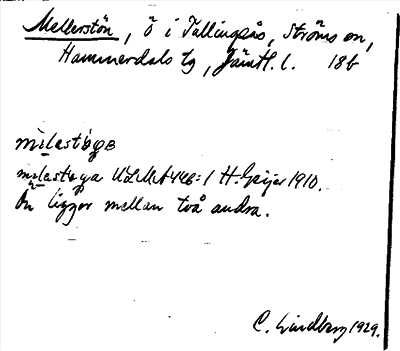 Mellerstön, ö i Tullingsås, Ströms sn,
Hammerdals tg, Jämtl. l. 18b
mɩlastøgɐ
mɩlastøga ULMA 446:1 H. Geijer 1910.
Ön ligger mellan två andra.
C. Lindberg 1929.